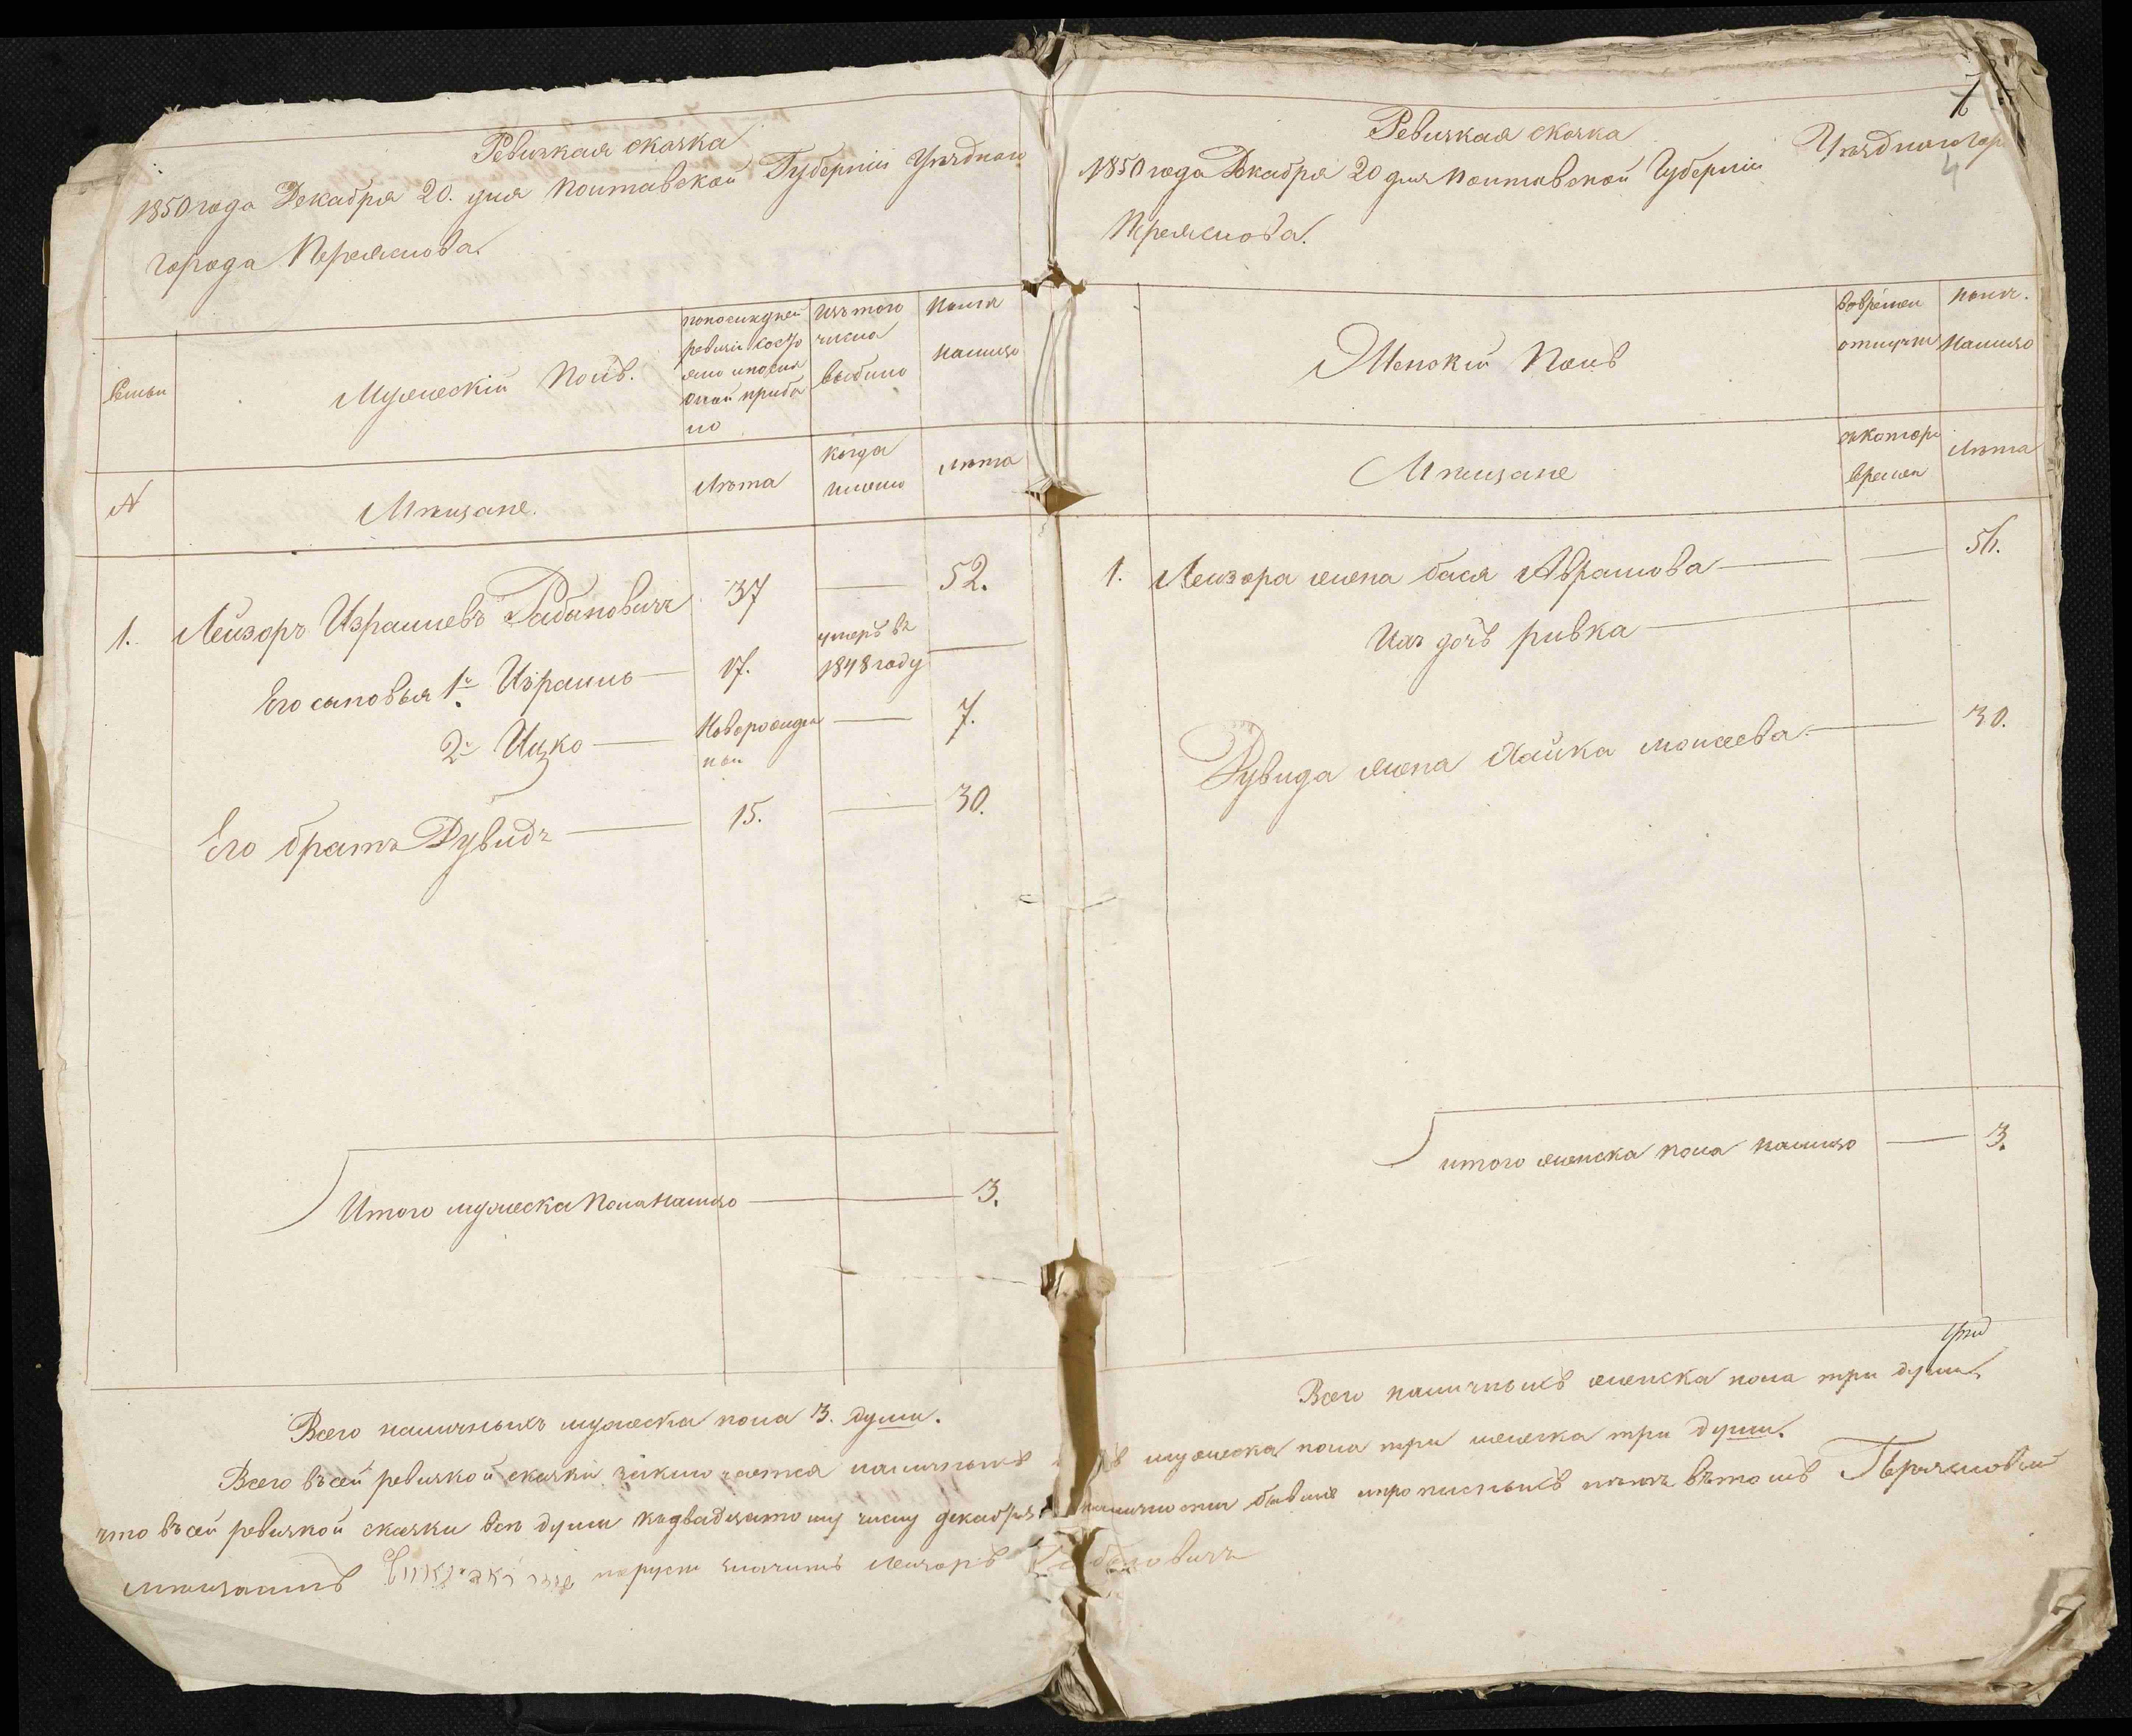 Ревизкая сказка
1850 года Декабря 20. дня Полтавской Губерніи Уѣзднаго
города Переяслова.
Семьи
Мужескій Полъ.
по последней
ревизіи состо
яло и после
оной прибы
ло
Изъ того
числа
выбыло
Ныне
налицо
№
Мѣщане.
Лѣта
когда
имено
лѣта
1. Лейзоръ Израилевъ Рабиновичъ 37 52.
Его сыновья 1й Израиль 17. умеръ въ 1848 году
2й Ицко Новорожден ной 7.
Его братъ Дувидъ 15. 30.
Итого мужеска пола налицо 3.
Всего наличныхъ мужеска пола 3. души.
7
4
Ревизкая сказка
1850 года Декабря 20 дня Полтавской Губерніи Уѣзднаго гор
Переяслова.
Женскій Полъ
Во времен
отлучки
Ныне.
налицо
Мѣщане
съ котора
времен
Лѣта
1. Лейзора жена Бася Абрамова 56.
Ихъ дочь Ривка
Дувида жена Хайка Моисеева 30.
итого женска пола налицо 3.
три
Всего наличныхъ женска пола три души
Всего въ сей ревизкой сказки заключается наличныхъ мужеска пола три женска три души.
что въ сей ревизкой сказки всѣ души къ двадцатому числу декабря наличности бывшіе и прописныхъ нѣтъ въ томъ Переяслов
мѣщанинъ по руски значитъ Лейзоръ Рабиновичъ